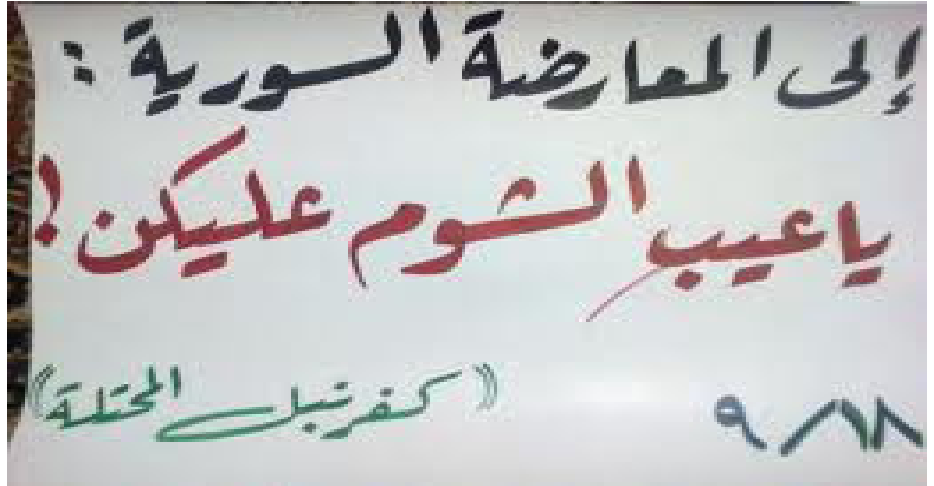 إلى المعارضة السورية :
ياعيب الشوم عليكن !
١٨/٩ (( كفرنبل المحتلة ))